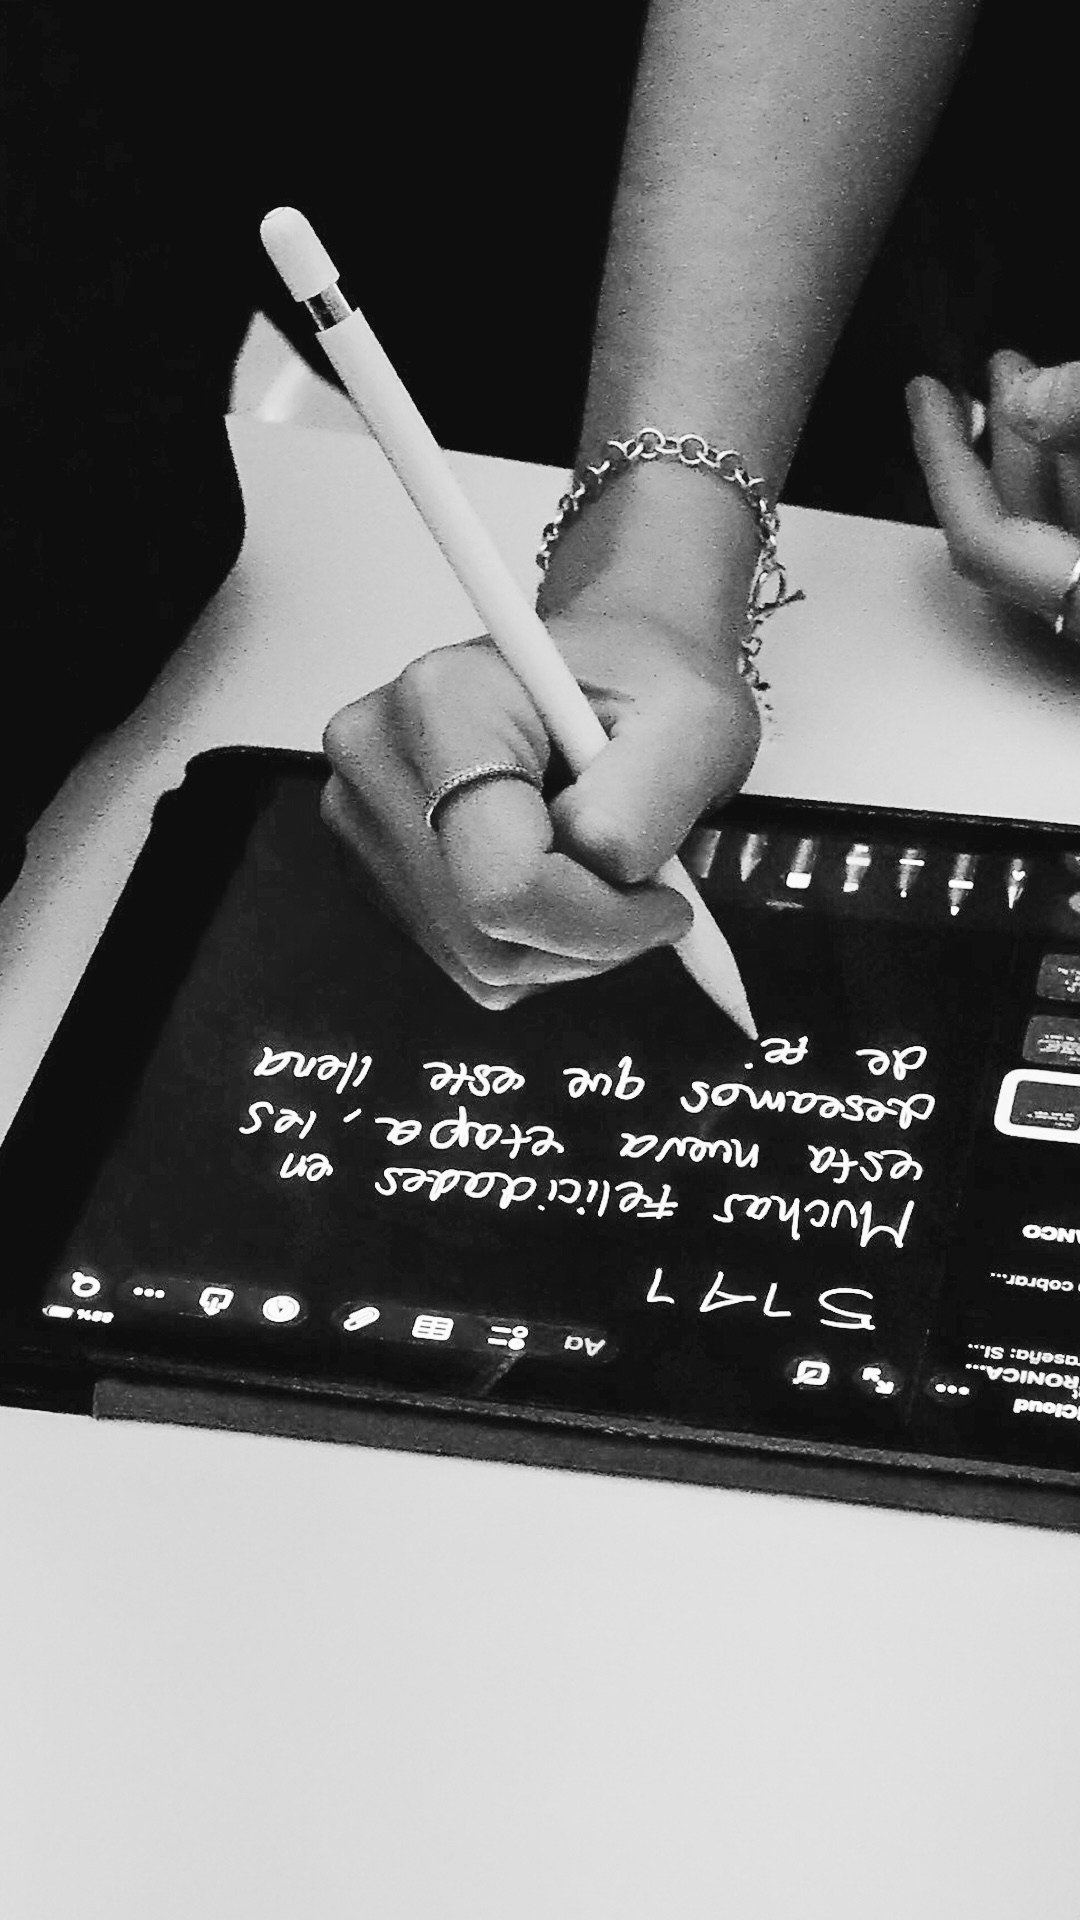 88%
iCloud
Aa
RONICA...
raseña: Sl...
cobrar...
ANCO
5141
Muchas Felicidades en
esta nueva etapa, les
deseamos que este llena
de fe